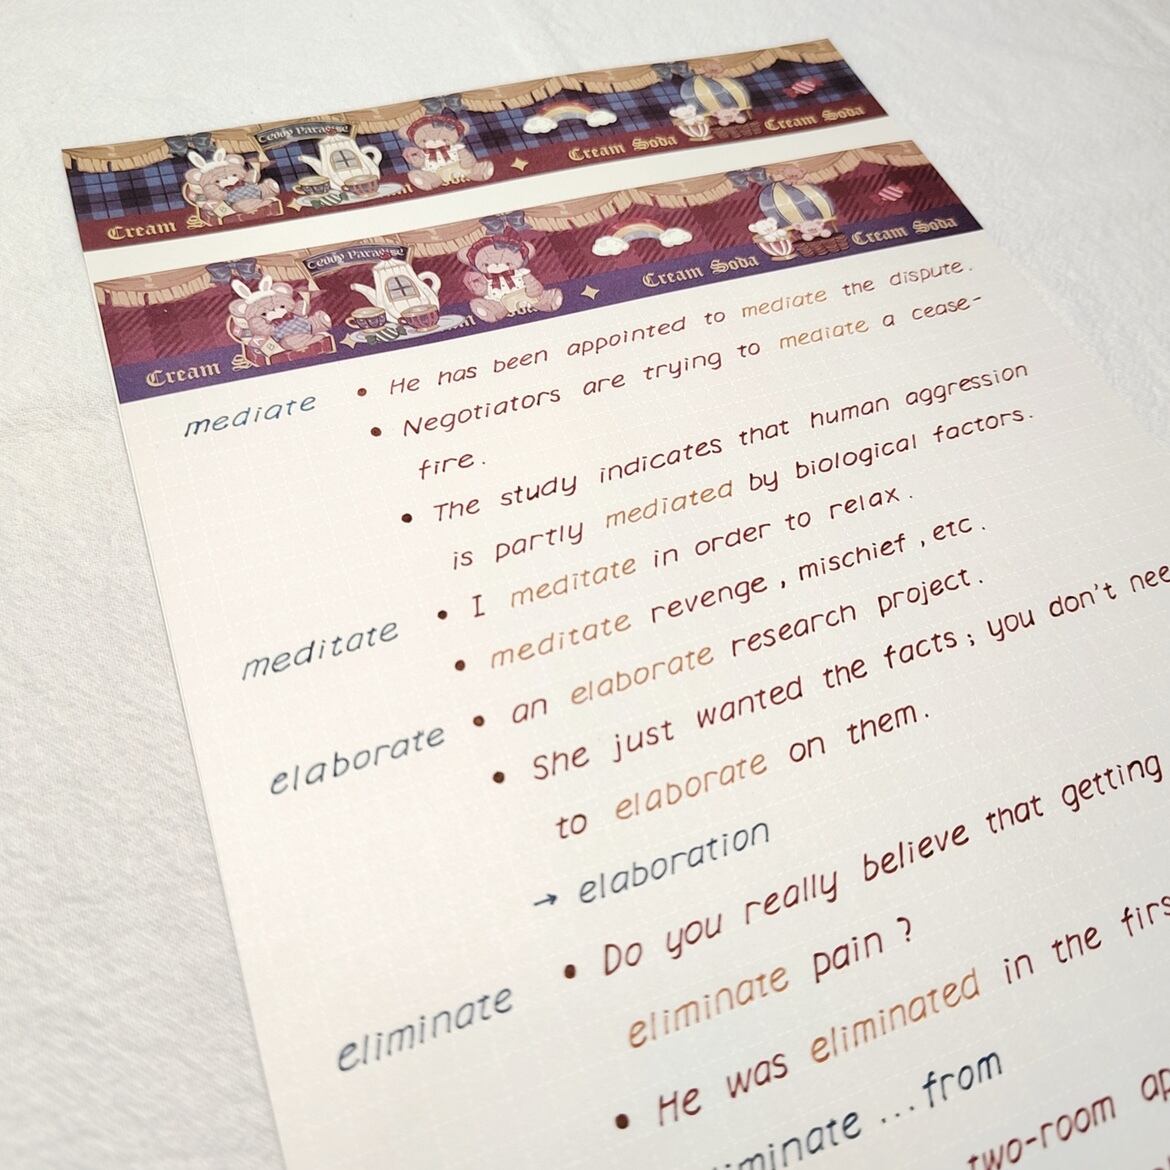 Teddy Paradise
Cream Soda
Cream
Teddy Paradise
Cream Soda
Cream Soda
Cream
mediate • He has been appointed to mediate the dispute.
• Negotiators are trying to mediate a cease-
fire.
• The study indicates that human aggression
is partly mediated by biological factors.
meditate • I meditate in order to relax.
• meditate revenge, mischief, etc.
elaborate • an elaborate research project.
• She just wanted the facts; you don't nee
to elaborate on them.
→ elaboration
eliminate • Do you really believe that getting
eliminate pain?
• He was eliminated in the firs
iminate ... from
two-room ap